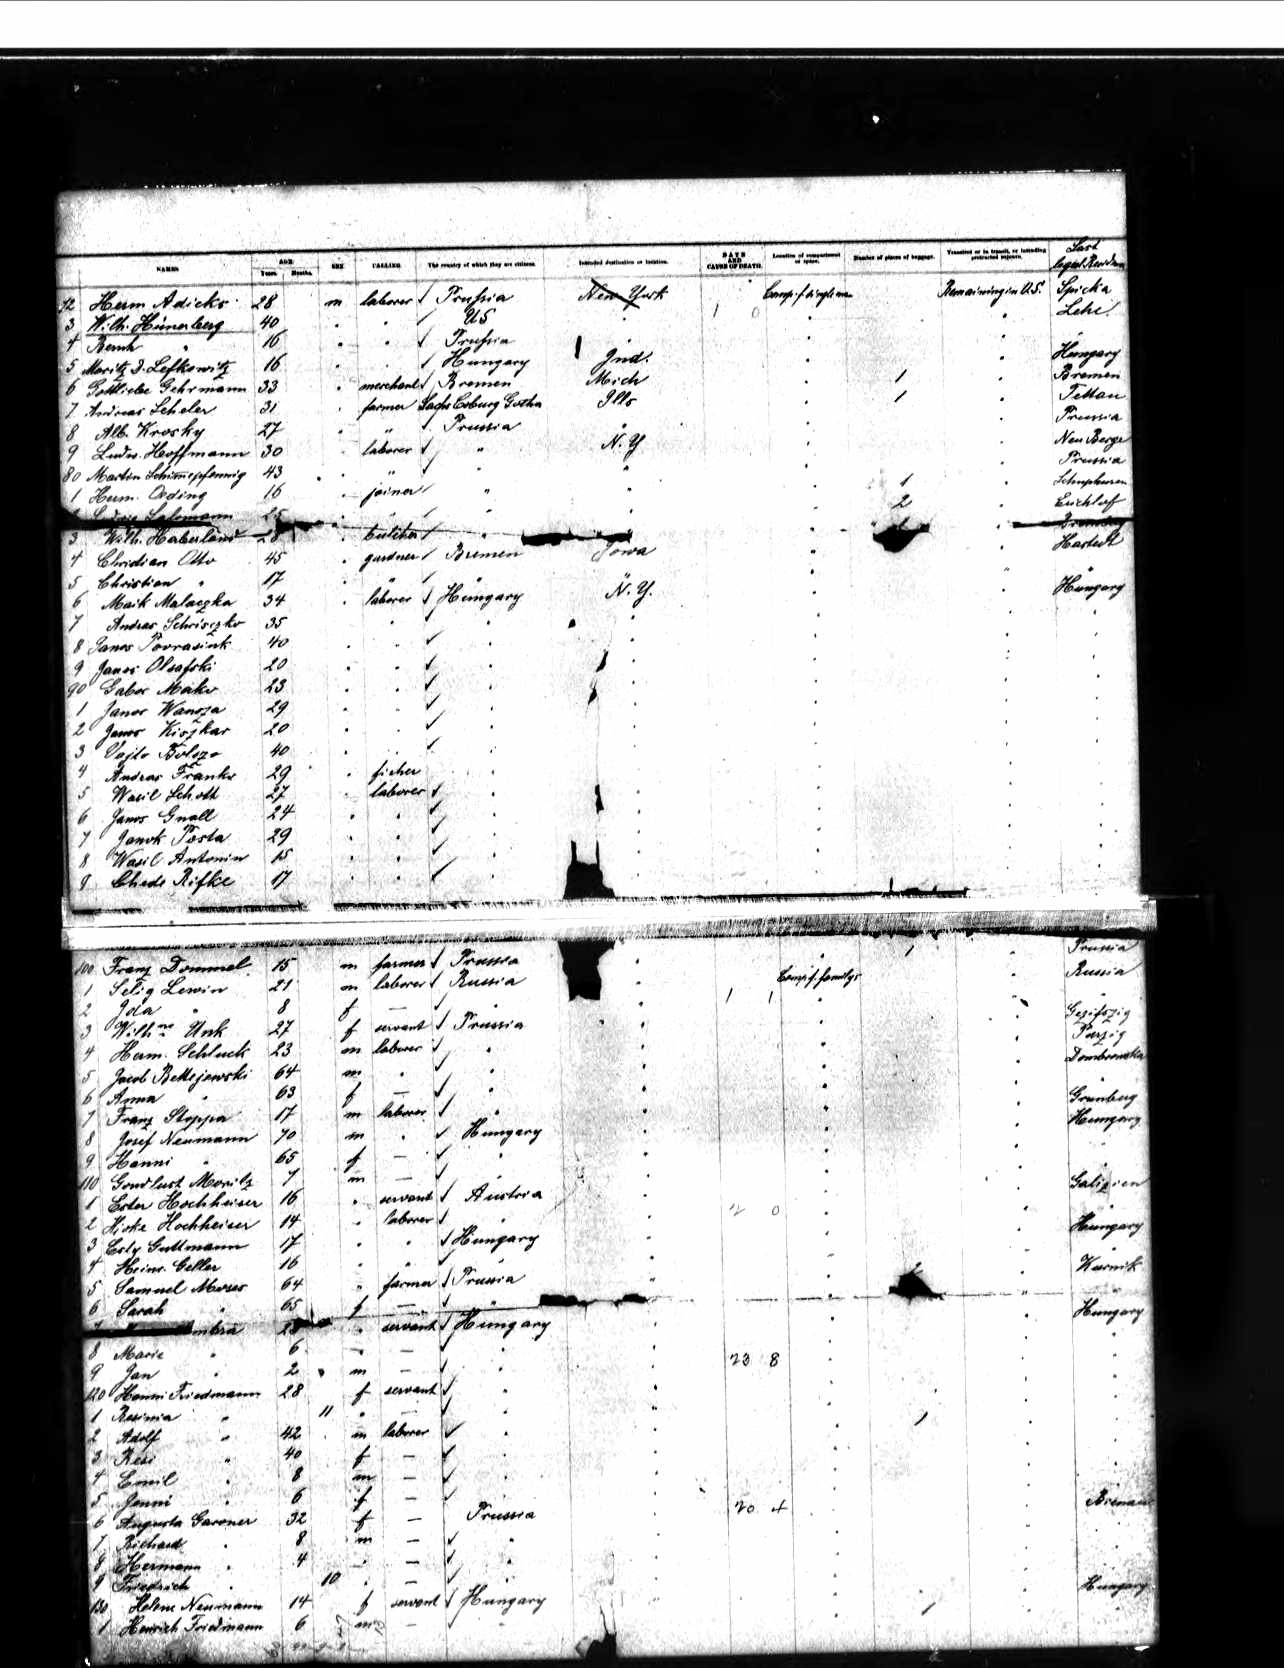 NAMES AGE Years. Months. SEX CALLING The country of which they are citizens. Intended destination or location. DATE AND CAUSE OF DEATH. Location of compartment or space. Number of pieces of baggage. Transient or in transit, or intending protracted sojourn. Last legal Residence
72 Herm Adicks 28 m laborer Prussia New York Comp. f. single men Remaining in U.S. Spicka
3 Wilh. Hünerberg 40 " " US 1 0 Lehe
4 Bernh " 16 " " Prussia "
5 Moritz J. Lefkowitz 16 " " Hungary Ind. Hungary
6 Gottliebe Gehrmann 33 " merchant Bremen Mich 1 Bremen
7 Andreas Scheler 31 " farmer Sachs Coburg Gotha Ills 1 Tettau
8 Alb. Krosky 27 " " Prussia " Prussia
9 Ludw. Hoffmann 30 " laborer " N.Y Neu Berge
80 Martin Schimmelpfennig 43 " " " " Prussia
1 Herm. Oeding 16 " joiner " " 1
Ludwig Salomann 25 " " " " 2
3 Wilh. Haberland 28 " butcher "
4 Christian Otto 45 " gardner Bremen Iowa Hastedt
5 Christian " 17 " " " " "
6 Maik Malaczka 34 " laborer Hungary N.Y. Hungary
7 Andras 35 " " " "
8 Janos Povrasnik 40 " " " "
9 Janos Olsafski 20 " " " "
90 Gabor Maiko 23 " " " "
1 Janos Wansza 29 " " " "
2 Janos Kiszkar 20 " " " "
3 Vajto 40 " " " "
4 Andras Franko 29 " fisher " "
5 Wasil Schoth 27 " laborer " "
6 Janos Gnall 24 " " " "
7 Janok Posta 29 " " " "
8 Wasil Antonin 15 " " " "
9 Chede Rifke 17 " " " "
100 Franz Dommel 15 m farmer Prussia " 1 Prussia
1 Selig Lewin 21 m laborer Russia " Comp. f. familys Russia
2 Ida " 8 f — " " 1 1 "
3 Wilh ne Unk 27 f servant Prussia "
4 Herm. Schluck 23 m laborer " "
5 Jacob Bettejewski 64 m " " " Dombrowka
6 Anna " 63 f — " " "
7 Franz Stoppa 17 m laborer " " Grünberg
8 Josef Neumann 70 m " Hungary " Hungary
9 Hanni " 65 f — " "
110 Gondlust Moritz 7 m — " "
1 Ester Hochheiser 16 " servant Austria " Galizien
2 Hirke Hochheiser 14 " laborer " " 2 0 "
3 Esty Guttmann 17 " " Hungary " Hungary
4 Heinr. Geller 16 " " " " "
5 Samuel Moses 64 " farmer Prussia " 2 Kurnik
6 Sarah " 65 f — "
7 28 " servant Hungary " Hungary
8 Marie " 6 " — " "
9 Jan " 2 m — " " 23 8
120 Hanni Friedmann 28 f servant " "
1 Rosinia " 11 " — " "
2 Adolf " 42 m laborer " " 1
3 Resi " 40 f — " "
4 Emil " 8 m — " "
5 Jenni " 6 f — " "
6 Augusta Garoner 32 f — Prussia " 20 4
7 Richard " 8 m — " "
8 Hermann " 4 " — " "
9 Friedrich " 10 " — " "
130 Helene Neumann 14 f servant Hungary " Hungary
1 Heinrich Friedmann 6 m — " "